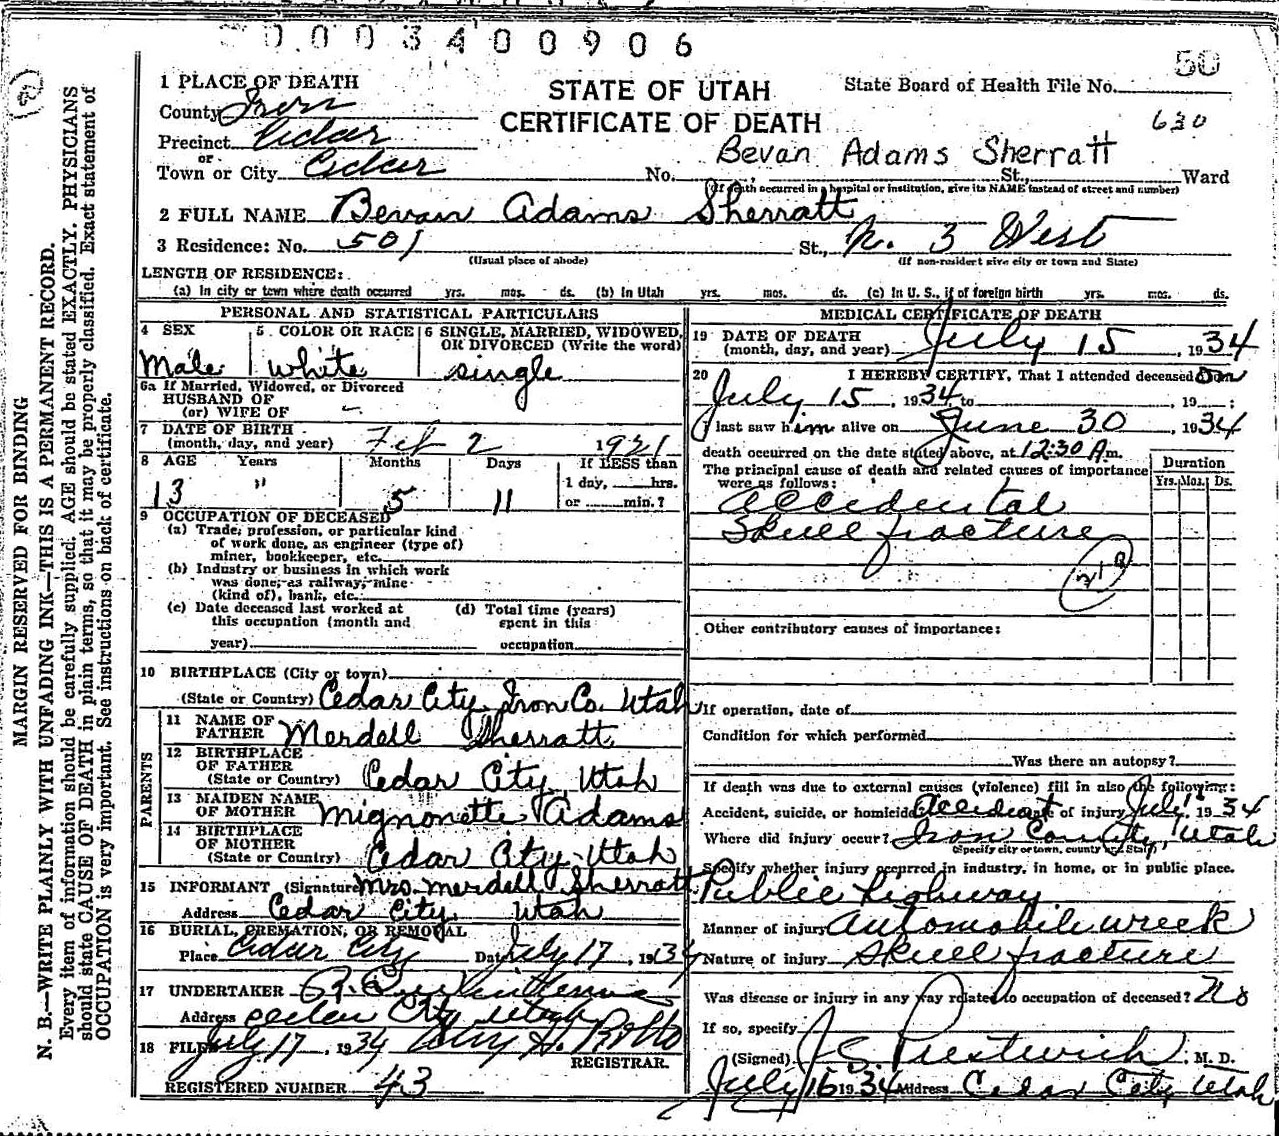 0003400906
50
1 PLACE OF DEATH
STATE OF UTAH
State Board of Health File No.
County Iron
CERTIFICATE OF DEATH
630
Precinct Cedar
or
Bevan Adams Sherratt
Town or City Cedar No. St., Ward
(If death occurred in a hospital or institution, give its NAME instead of street and number)
2 FULL NAME Bevan Adams Sherratt
3 Residence: No. 501 St., N. 3 West
(Usual place of abode) (If non-resident give city or town and State)
LENGTH OF RESIDENCE:
(a) In city or town where death occurred yrs. mos. ds. (b) In Utah yrs. mos. ds. (c) In U. S., if of foreign birth yrs. mos. ds.
PERSONAL AND STATISTICAL PARTICULARS
4 SEX 5. COLOR OR RACE 6 SINGLE, MARRIED, WIDOWED,
OR DIVORCED (Write the word)
Male white single
6a If Married, Widowed, or Divorced
HUSBAND OF
(or) WIFE OF -
7 DATE OF BIRTH
(month, day, and year) Feb 2 1921
8 AGE Years Months Days If LESS than
1 day, hrs.
13 " 5 11 or min.?
9 OCCUPATION OF DECEASED
(a) Trade, profession, or particular kind
of work done, as engineer (type of)
miner, bookkeeper, etc.
(b) Industry or business in which work
was done, as railway, mine
(kind of), bank, etc.
(c) Date deceased last worked at (d) Total time (years)
this occupation (month and spent in this
year) occupation
10 BIRTHPLACE (City or town)
(State or Country) Cedar City Iron Co. Utah
PARENTS
11 NAME OF
FATHER Merdell Sherratt
12 BIRTHPLACE
OF FATHER
(State or Country) Cedar City Utah
13 MAIDEN NAME
OF MOTHER Mignonette Adams
14 BIRTHPLACE
OF MOTHER
(State or Country) Cedar City Utah
15 INFORMANT (Signature Mrs. Merdell Sherratt
Address Cedar City Utah
16 BURIAL, CREMATION, OR REMOVAL
Place Cedar City Date July 17, 1934
17 UNDERTAKER
Address Cedar City Utah
18 FILED July 17, 1934
REGISTRAR.
REGISTERED NUMBER 43
MEDICAL CERTIFICATE OF DEATH
19 DATE OF DEATH
(month, day, and year) July 15, 1934
20 I HEREBY CERTIFY, That I attended deceased on
July 15, 1934 to , 19 ;
I last saw him alive on June 30, 1934
death occurred on the date stated above, at 12:30 A.m.
The principal cause of death and related causes of importance
were as follows:
Duration
Yrs. Mos. Ds.
Accidental
Skull fracture
Other contributory causes of importance:
If operation, date of
Condition for which performed
Was there an autopsy?
If death was due to external causes (violence) fill in also the following:
Accident, suicide, or homicide Accident of injury July 15 1934
Where did injury occur? Iron County, Utah
(Specify city or town, county and State)
Specify whether injury occurred in industry, in home, or in public place.
Public highway
Manner of injury automobile wreck
Nature of injury Skull fracture
Was disease or injury in any way related to occupation of deceased? No
If so, specify
(Signed) J S Prestwich, M. D.
July 16 1934 Address Cedar City Utah
MARGIN RESERVED FOR BINDING
N. B.—WRITE PLAINLY WITH UNFADING INK—THIS IS A PERMANENT RECORD.
Every item of information should be carefully supplied. AGE should be stated EXACTLY. PHYSICIANS
should state CAUSE OF DEATH in plain terms, so that it may be properly classified. Exact statement of
OCCUPATION is very important. See instructions on back of certificate.